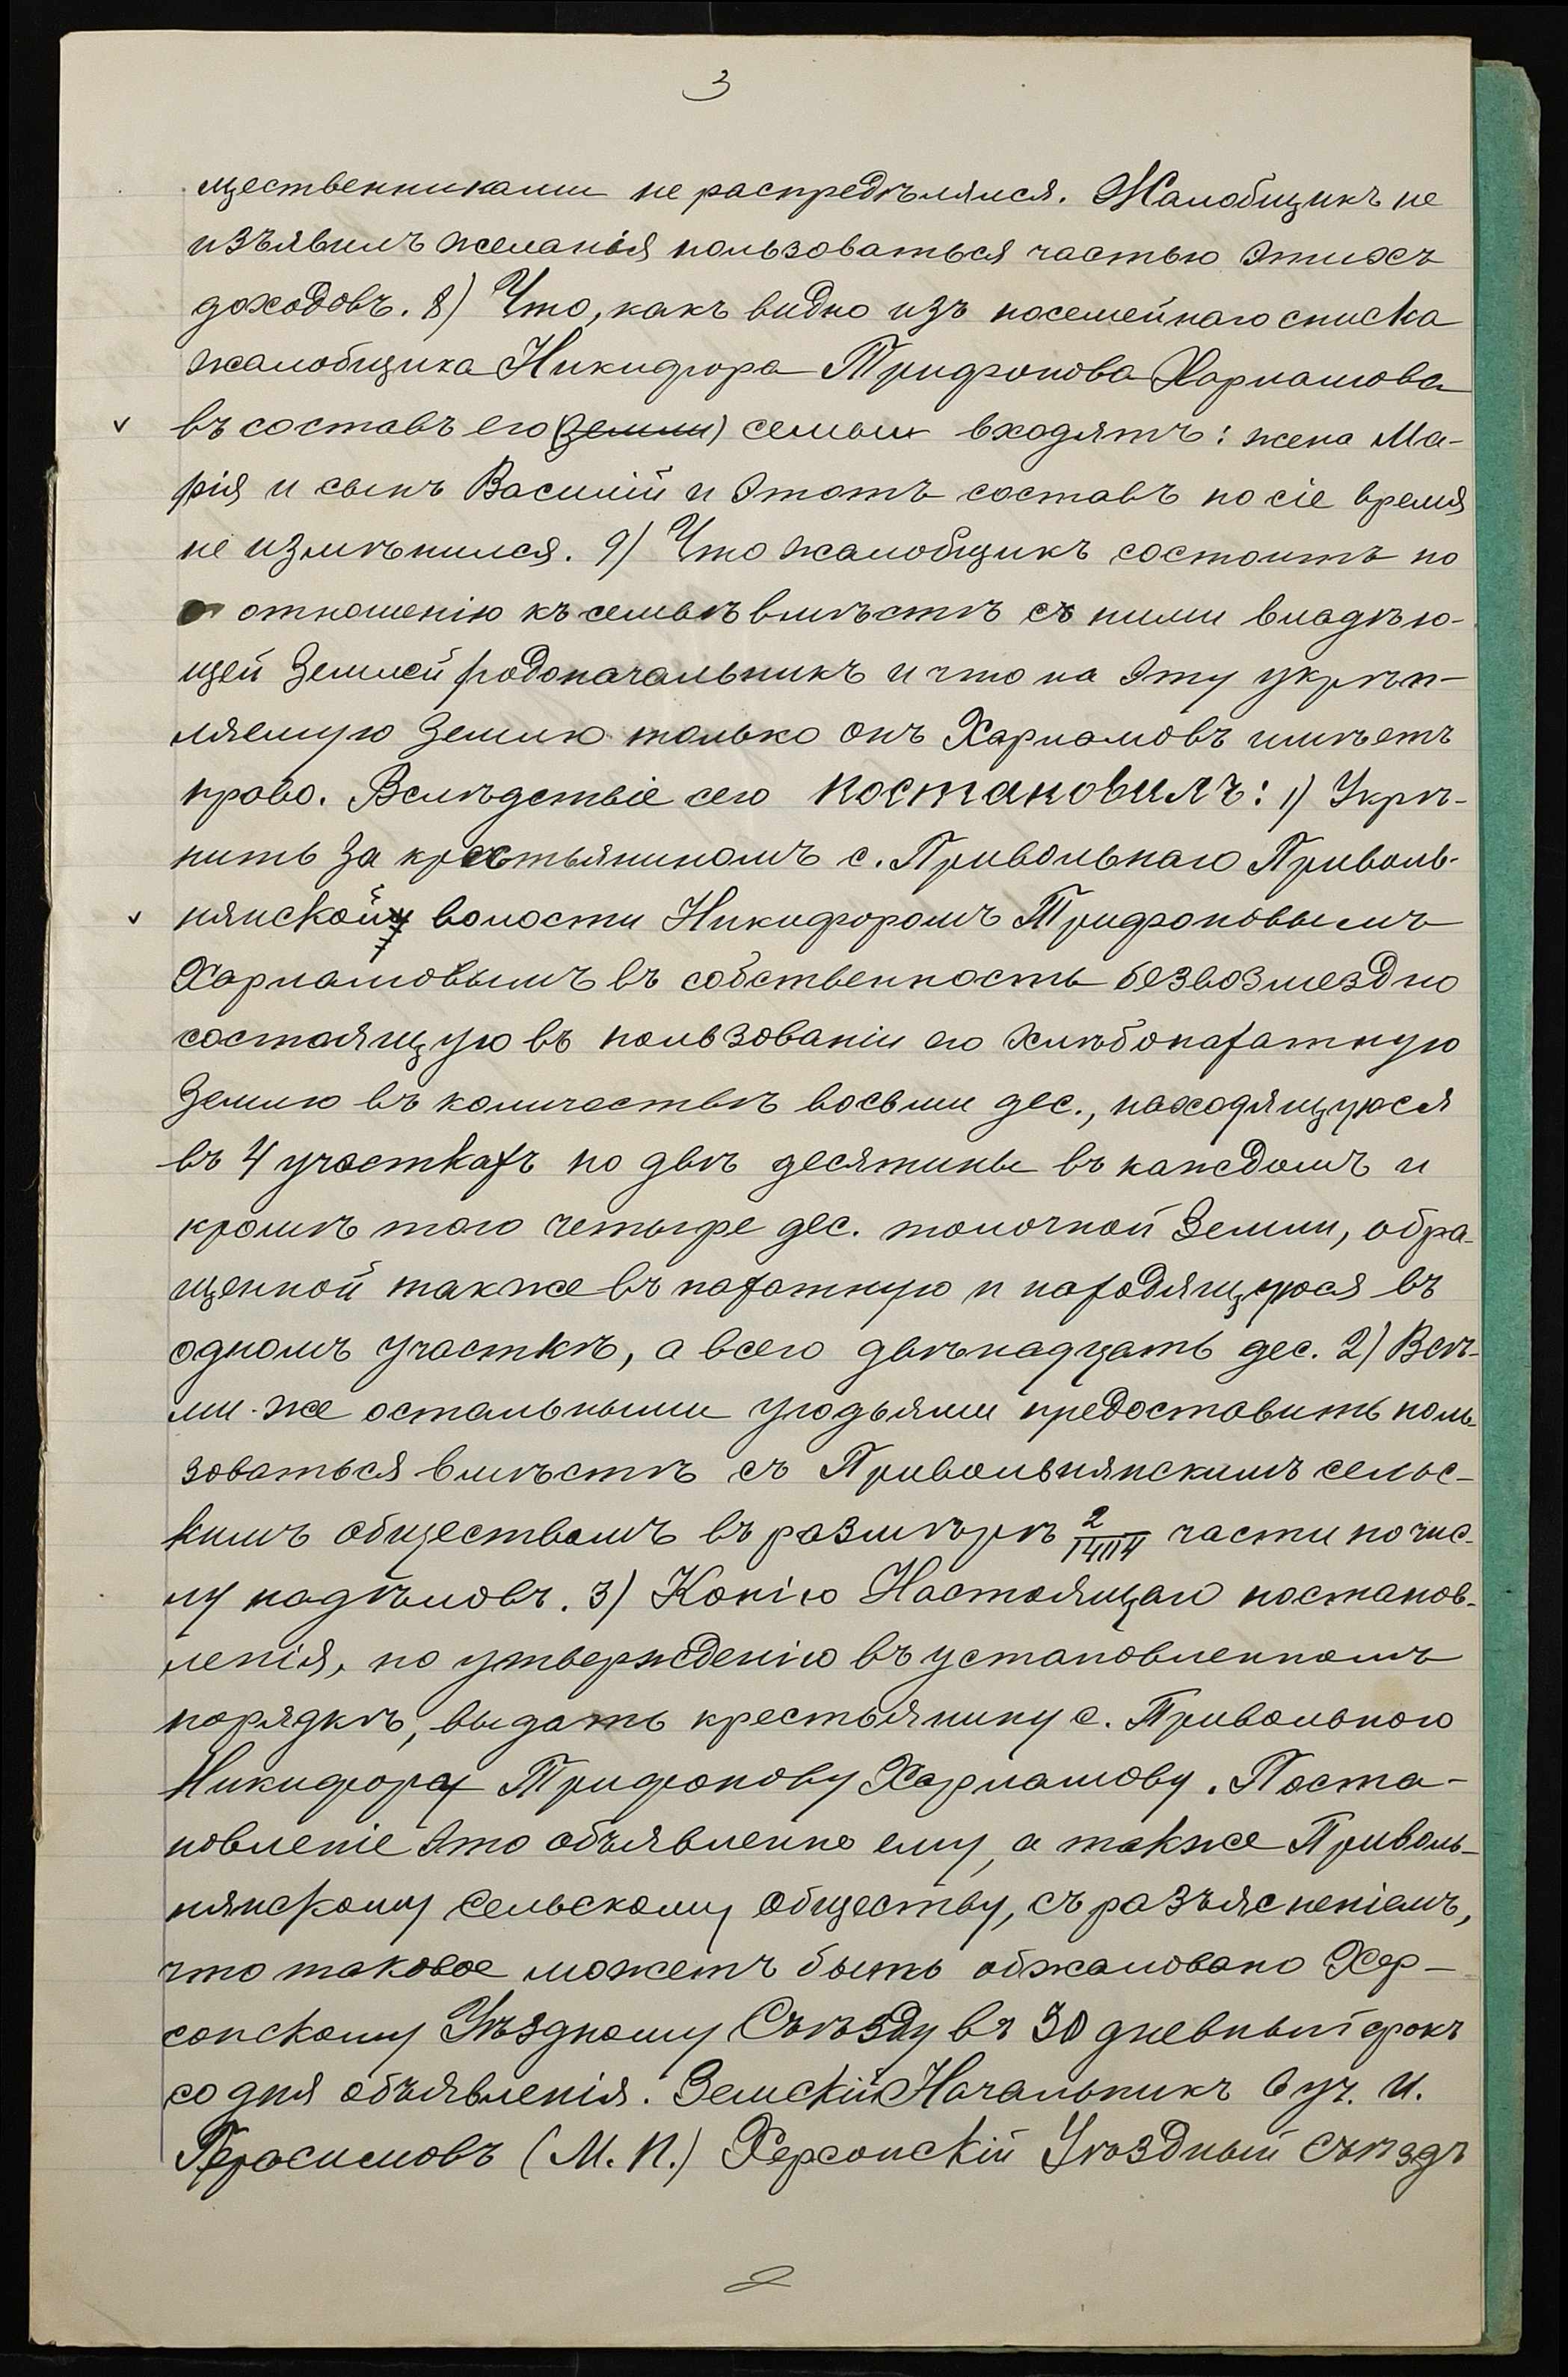 3
щественниками не распредѣлялся. Жалобщикъ не
изъявилъ желанія пользоваться частью этихъ
доходовъ. 8) Что, какъ видно изъ посемейнаго списка
жалобщика Никифора Трифонова Харламова
въ составъ его (земли) семьи входятъ: жена Ма-
рія и сынъ Василій и этотъ составъ по сіе время
не измѣнился. 9) Что жалобщикъ состоитъ по
отношенію къ семьѣ вмѣстѣ съ ними владѣю-
щей землей родоначальникъ и что на эту укрѣп-
ляемую землю только онъ Харламовъ имѣетъ
право. Вслѣдствіе сего постановилъ: 1) Укрѣ-
пить за крестьяниномъ с. Привольнаго Приволь-
нянской волости Никифоромъ Трифоновымъ
Харламовымъ въ собственность безвозмездно
состоящую въ пользованіи его хлѣбопахатную
землю въ количествѣ восьми дес., находящуюся
въ 4 участкахъ по двѣ десятины въ каждомъ и
кромѣ того четыре дес. толочной земли, обра-
щенной также въ пахатную и находящуюся въ
одномъ участкѣ, а всего двѣнадцать дес. 2) Всѣ-
ми-же остальными угодьями предоставить поль-
зоваться вмѣстѣ съ Привольнянскимъ сельс-
кимъ обществомъ въ размѣрѣ 2/1414 части по чис-
лу надѣловъ. 3) Копію Настоящаго постанов-
ленія, по утвержденію въ установленномъ
порядкѣ, выдать крестьянину с. Привольного
Никифору Трифонову Харламову. Поста-
новленіе это объявленно ему, а также Приволь-
нянскому сельскому обществу, съ разъясненіемъ,
что таковое можетъ быть обжаловано Хер-
сонскому Уѣздному Съѣзду въ 30 дневный срокъ
со дня объявленія. Земскій Начальникъ 6 уч. И.
Герасимовъ (М. П.) Херсонскій Уѣздный Съѣздъ